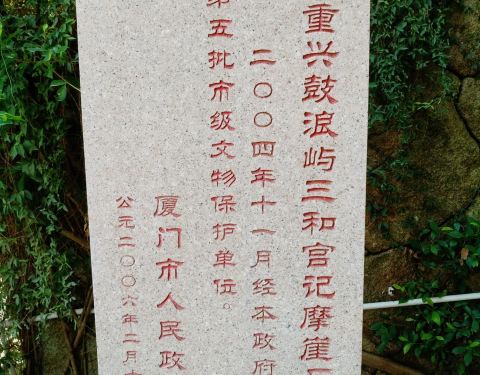 重兴鼓浪屿三和宫记摩崖
二〇〇四年十一月经本政府
第五批市级文物保护单位。
厦门市人民政
公元二〇〇六年二月